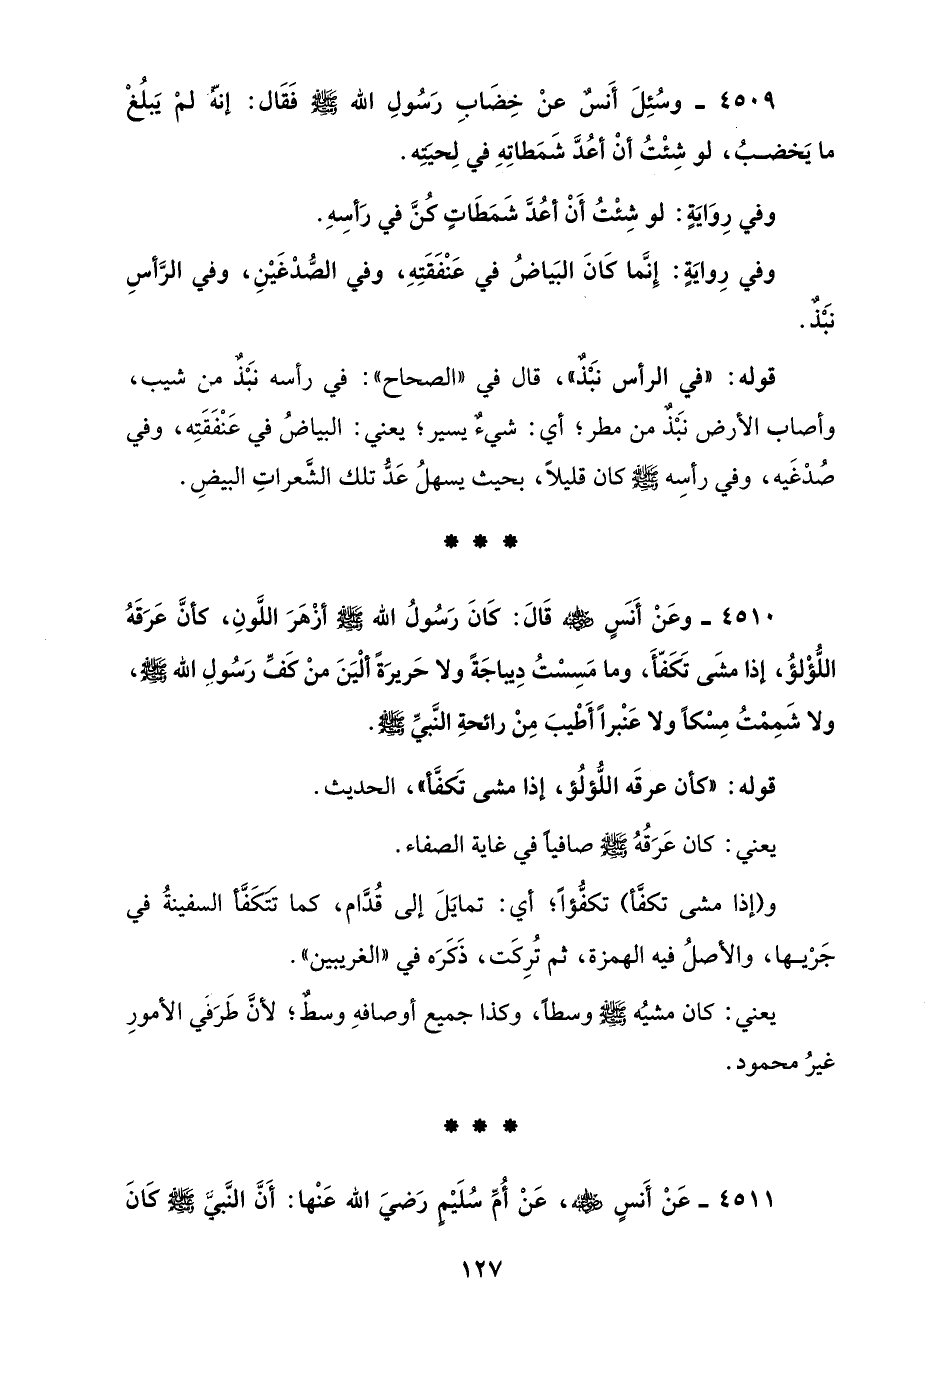 ٤٥٠٩ ـ وسُئِلَ أَنسٌ عنْ خِضَابِ رَسُولِ الله ﷺ فَقَال: إنهّ لمْ يَبلُغْ
ما يَخضــبُ، لو شِئْتُ أنْ أعُدَّ شَمَطاتِهِ في لِحيَتِه.
وفي رِوَايَةٍ: لو شِئْتُ أَنْ أعُدَّ شَمَطَاتٍ كُنَّ في رَأسِهِ.
وفي رِوايَةٍ: إِنَّما كَانَ البَياضُ في عَنْفَقَتِهِ، وفي الصُّدْغَيْنِ، وفي الرَّأسِ
نَبْذٌ.
قوله: «في الرأس نَبْذٌ»، قال في «الصحاح»: في رأسه نَبْذٌ من شيب،
وأصاب الأرض نَبْذٌ من مطر؛ أي: شيءٌ يسير؛ يعني: البياضُ في عَنْفَقَتِه، وفي
صُدْغَيه، وفي رأسِه ﷺ كان قليلاً، بحيث يسهلُ عَدُّ تلك الشَّعراتِ البيضِ.
* * *
٤٥١٠ ـ وعَنْ أَنَسٍ ﵁ قَالَ: كَانَ رَسُولُ الله ﷺ أزْهَرَ اللَّونِ، كأنَّ عَرَقَهُ
اللُّؤْلؤُ، إذا مشَى تَكَفّأَ، وما مَسِسْتُ دِيباجَةً ولا حَرِيرَةً ألْيَنَ منْ كَفِّ رَسُولِ الله ﷺ،
ولا شَمِمْتُ مِسْكاً ولا عَنْبراً أَطْيبَ مِنْ رائحةِ النَّبيِّ ﷺ.
قوله: «كأن عرقه اللُّؤلُؤ، إذا مشى تَكفَّأ»، الحديث.
يعني: كان عَرَقُهُ ﷺ صافياً في غاية الصفاء.
و(إذا مشى تكفَّأ) تكفُّؤاً؛ أي: تمايَلَ إلى قُدَّام، كما تَتَكَفَّأ السفينةُ في
جَرْيــها، والأصلُ فيه الهمزة، ثم تُرِكَت، ذَكَرَه في «الغريبين».
يعني: كان مشيُه ﷺ وسطاً، وكذا جميع أوصافهِ وسطٌ؛ لأنَّ طَرَفَي الأمورِ
غيرُ محمود.
* * *
٤٥١١ ـ عَنْ أَنسٍ ﵁، عَنْ أُمِّ سُلَيْمٍ رَضيَ الله عَنْها: أَنَّ النَّبيَّ ﷺ كَانَ
١٢٧